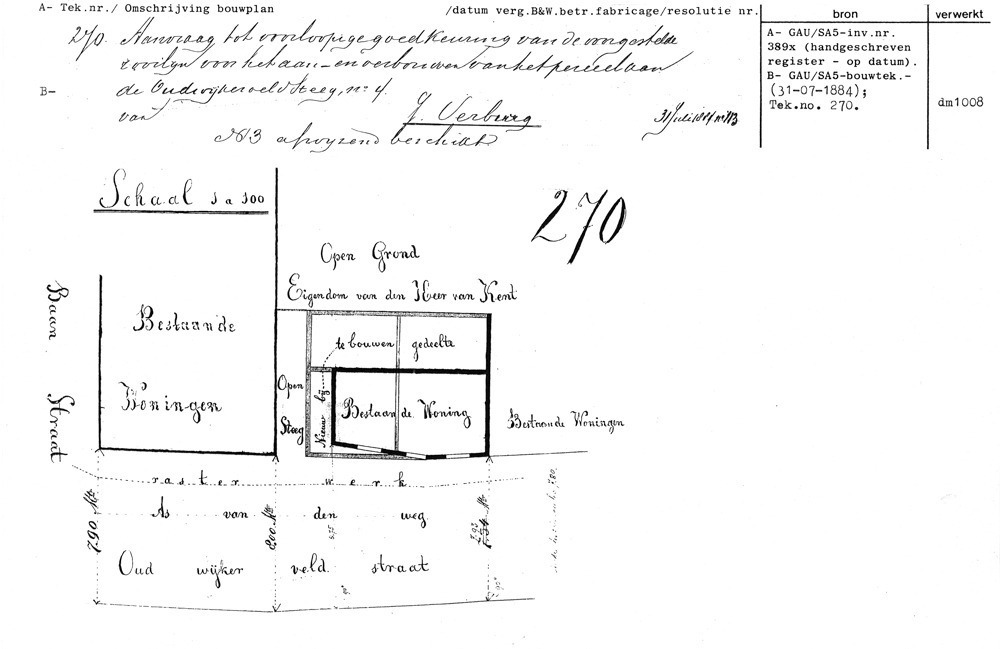 A- Tek.nr./ Omschrijving bouwplan /datum verg.B&W.betr.fabricage/resolutie nr.
bron
verwerkt
270. Aanvraag tot voorloopige goedkeuring van de voorgestelde
rooilyn voor het aan- en verbouwen van het perceel aan
B-
de Oudwijkerveld Steeg, no 4.
van J. Verburg 31 Juli 1884 no 113
No 3 afwyzend beschikt
A- GAU/SA5-inv.nr.
389x (handgeschreven
register - op datum).
B- GAU/SA5-bouwtek.-
(31-07-1884);
Tek.no. 270.
dm1008
Schaal 1 a 100
270
Open Grond
Eigendom van den Heer van Kent
Baan Straat
Bestaande
Woningen
te bouwen gedeelte
Open
Steeg
Nieuw bij
Bestaande Woning
Bestaande Woningen
rasterwerk
As van den weg
7.90 Mtr
8.00 Mtr
6.75
7.93
Oud wijker veld straat